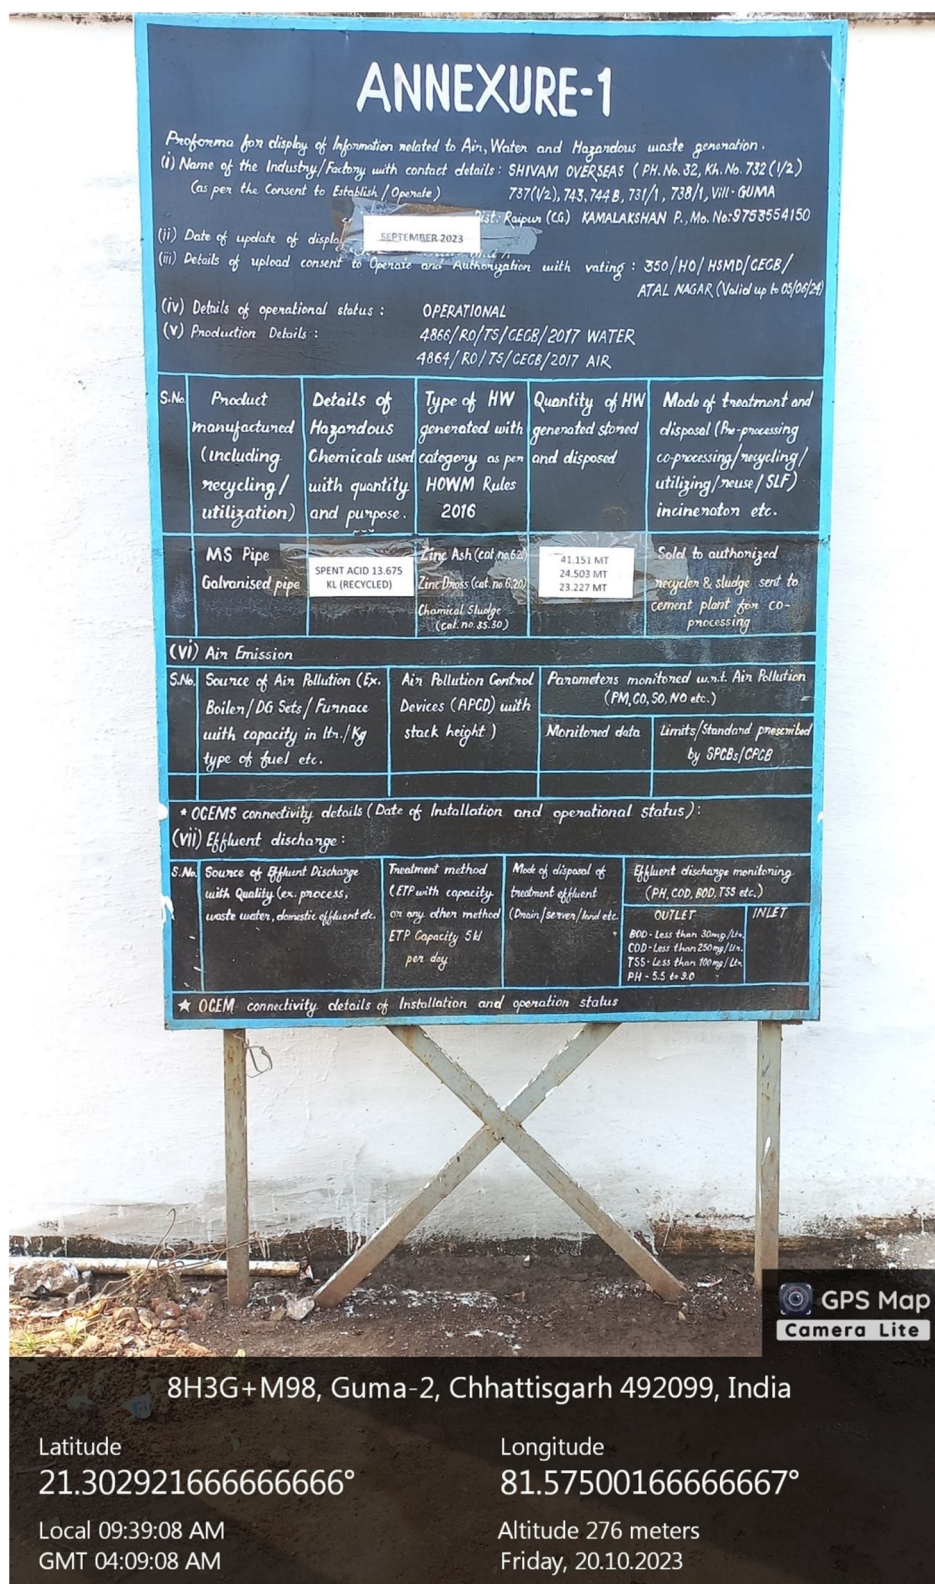 ANNEXURE-1
Proforma for display of Information related to Air, Water and Hazardous waste generation.
(i) Name of the Industry/Factory with contact details : SHIVAM OVERSEAS (PH. No. 32, Kh. No. 732 (1/2)
(as per the Consent to Establish / Operate) 737(1/2), 743, 744 B, 731/1, 738/1, Vill- GUMA
Dist.: Raipur (C.G) KAMALAKSHAN P., Mo. No:9753554150
(ii) Date of update of display SEPTEMBER 2023
(iii) Details of upload consent to Operate and Authorization with vating : 350/HO/HSMD/CECB/
ATAL NAGAR (Valid up to 05/06/24)
(iv) Details of operational status : OPERATIONAL
(v) Production Details : 4866/RO/TS/CECB/2017 WATER
4864/RO/TS/CECB/2017 AIR
S.No.
Product
manufactured
(including
recycling/
utilization)
Details of
Hazardous
Chemicals used
with quantity
and purpose.
Type of HW
generated with
category as per
HOWM Rules
2016
Quantity of HW
generated stored
and disposed
Mode of treatment and
disposal (Pre-processing
co-processing/recycling/
utilizing/reuse/SLF)
incinerator etc.
MS Pipe
Galvanised pipe
SPENT ACID 13.675
KL (RECYCLED)
Zinc Ash (cat. no.6.20)
Zinc Dross (cat. no 6.20)
Chamical Sludge
(cat. no. 35.30)
41.151 MT
24.503 MT
23.227 MT
Sold to authorized
recycler & sludge sent to
cement plant for co-
processing
(vi) Air Emission
S.No.
Source of Air Pollution (Ex.
Boiler/DG Sets/Furnace
with capacity in ltr./Kg
type of fuel etc.
Air Pollution Control
Devices (APCD) with
stack height)
Parameters monitored w.r.t. Air Pollution
(PM, CO, SO, NO etc.)
Monitored data
Limits/Standard prescribed
by SPCBs/CPCB
* OCEMS connectivity details (Date of Installation and operational status) :
(vii) Effluent discharge :
S.No.
Source of Effluent Discharge
with Quality (ex. process,
waste water, domestic effluent etc.
Treatment method
(ETP with capacity
or any other method
ETP Capacity 5 kl
per day
Mode of disposal of
treatment effluent
(Drain/server/land etc.
Effluent discharge monitoring
(PH, COD, BOD, TSS etc.)
OUTLET
BOD - Less than 30mg/Ltr.
COD - Less than 250mg/Ltr.
TSS - Less than 100mg/Ltr.
PH - 5.5 to 9.0
INLET
★ OCEM connectivity details of Installation and operation status
GPS Map
Camera Lite
8H3G+M98, Guma-2, Chhattisgarh 492099, India
Latitude
21.302921666666666°
Longitude
81.57500166666667°
Local 09:39:08 AM
GMT 04:09:08 AM
Altitude 276 meters
Friday, 20.10.2023